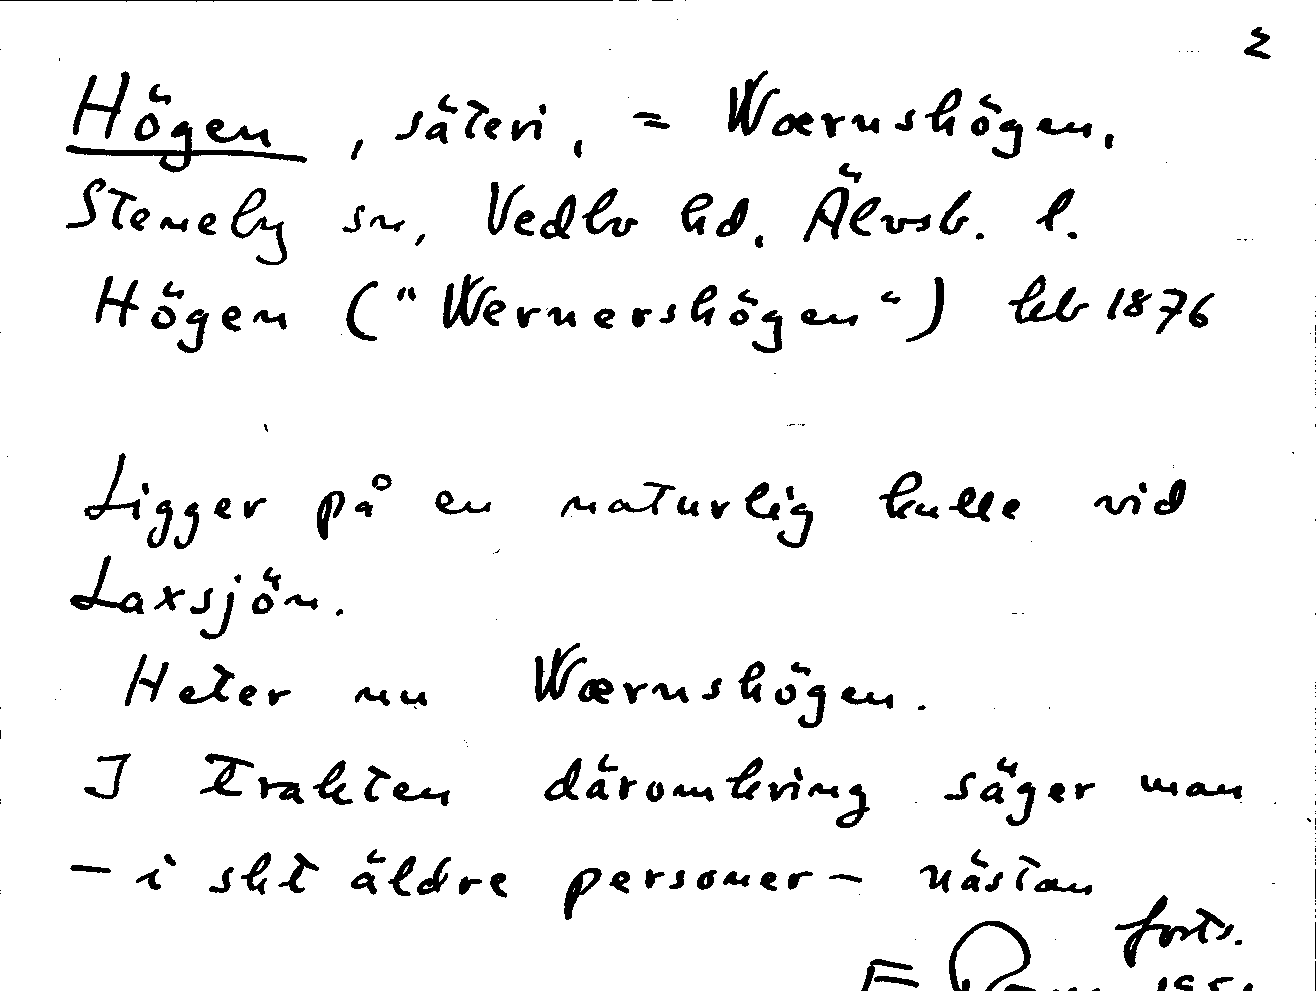 2
Högen, säteri, = Wærnshögen.
Steneby sn, Vedbo hd. Älvsb. l.
Högen ("Wernershögen") kb 1876
Ligger på en naturlig kulle vid
Laxsjön.
Heter nu Wærnshögen.
I trakten däromkring säger man
– i sht äldre personer – nästan
forts.